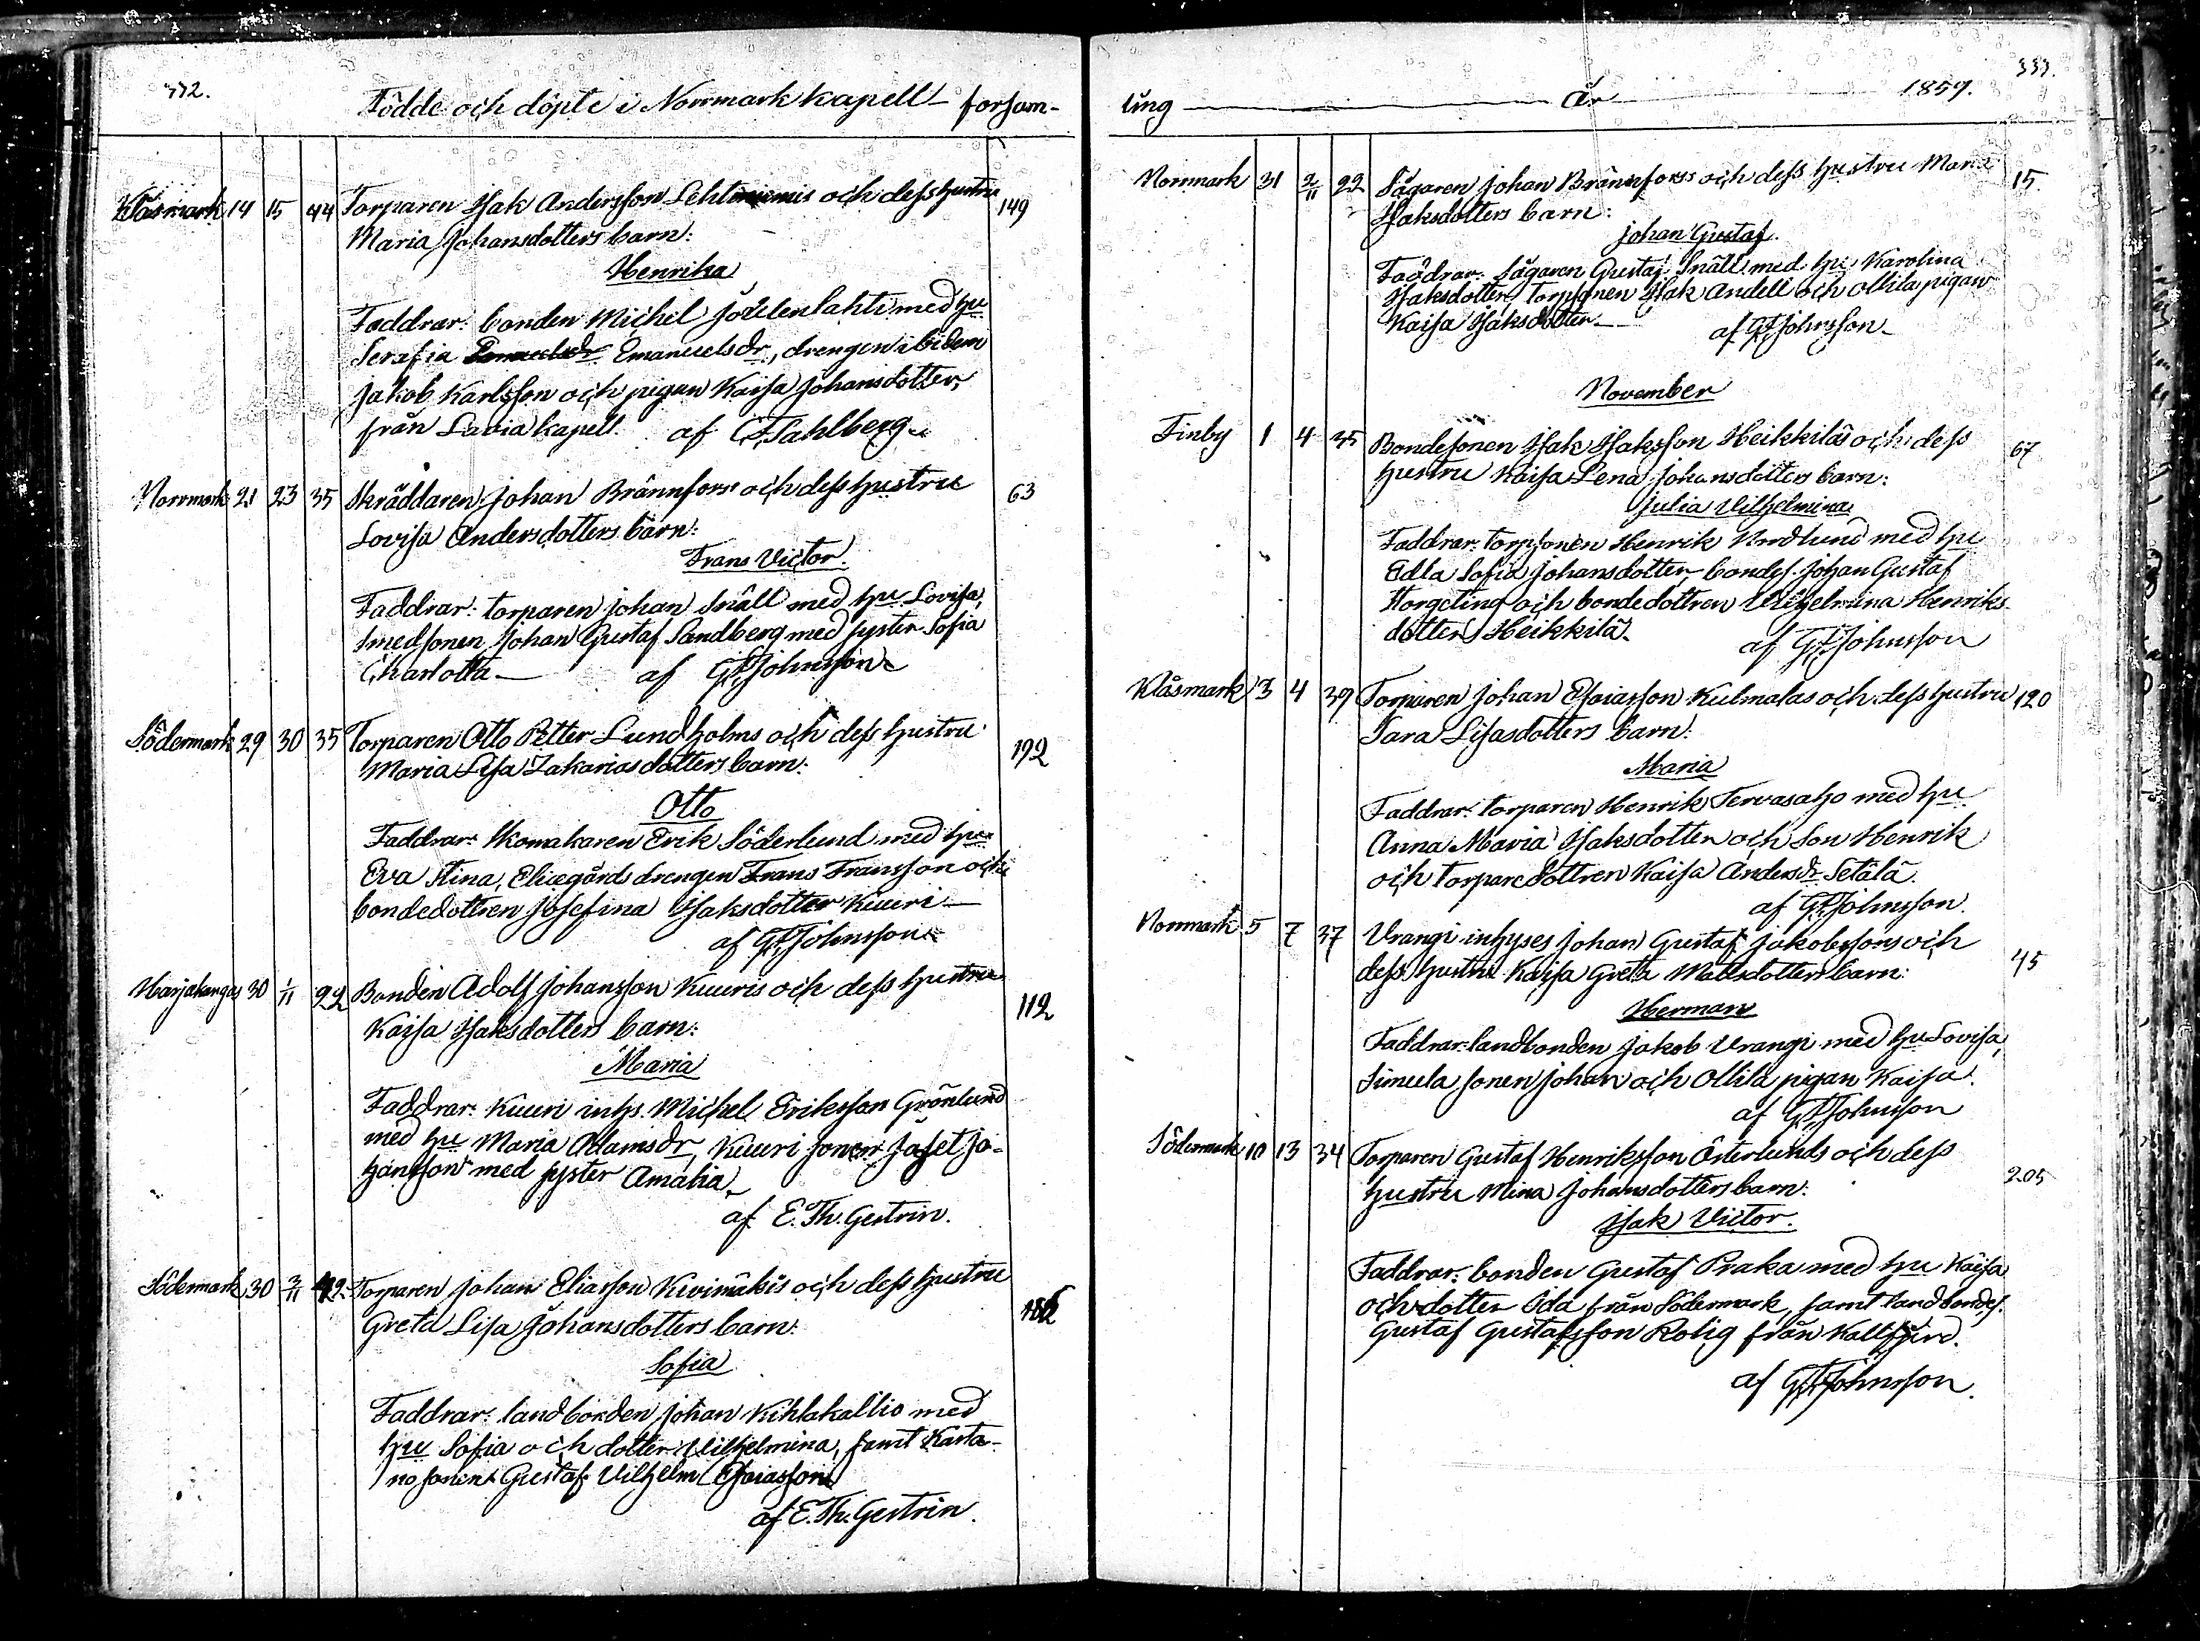 332.
Födde och döpte i Norrmark kapell- försam-
Klåsmark 14 15 44 Torparen Isak Andersson Lehtiniemis och dess hustru 149
Maria Johansdotters barn:
Henrika
Faddrar: bonden Michel Jätlenlahti med hu
Serafia Emanuelsdr, drengen ibidem
Jakob Karlsson och pigan Kaisa Johansdotter,
från Lavia kapell. af C F Sahlberg
Norrmark 21 23 35 Skräddaren Johan Brännfors och dess hustru 63
Lovisa Andersdotters barn:
Frans Victor.
Faddrar: torparen Johan Snäll med hu Lovisa,
smedsonen Johan Gustaf Sandberg med syster Sofia
Charlotta af G F Johnsson
Södermark 29 30 35 Torparen Otto Petter Lundholms och dess hustru 192
Maria Lisa Zakariasdotters barn:
Otto
Faddrar: Skomakaren Erik Söderlund med hu
Eva Stina, Eliægårds drengen Frans Fransson och
bondedottren Josefina Isaksdotter Kuuri
af G F Johnsson
Harjakangas 30 1/11 22 Bonden Adolf Johansson Kuuris och dess hustru 112
Kaisa Isaksdotters barn:
Maria
Faddrar: Kuuri inhs. Michel Eriksson Grönlund
med hu Maria Adamsdr, Kuuri sonen Jafet Jo-
hansson med syster Amalia
af E. Th. Gestrin.
Södermark 30 2/11 42. Torparen Johan Eliasson Kivimäkis och dess hustru 186
Greta Lisa Johansdotters barn:
Sofia
Faddrar: landbonden Johan Kihlakallio med
hu Sofia och dotter Vilhelmina, samt Karta-
no sonen Gustaf Vilhelm Esaiasson
af E. Th. Gestrin.
333.
ling År 1859.
Norrmark 31 2/11 22 Sågaren Johan Brännforss och dess hustru Maria 15.
Isaksdotters barn:
Johan Gustaf.
Faddrar: Sågaren Gustaf Snäll med hu Karolina
Isaksdotter, Torparen Isak Andell och Ollila pigan
Kaisa Isaksdotter af G F Johnsson
November
Finby 1 4 35 Bondesonen Isak Isaksson Heikkiläs och dess 67
hustru Kaisa Lena Johansdotters barn:
Julia Vilhelmina
Faddrar: torpsonen Henrik Nordlund med hu
Edla Sofia Johansdotter, bondes. Johan Gustaf
Storgeting och bondedottren Vilhelmina Henriks-
dotter Heikkilä. af G F Johnsson
Klåsmark 3 4 39 Torparen Johan Esaiasson Kulmalas och dess hustru 120
Sara Lisasdotters barn:
Maria
Faddrar: torparen Henrik Tervasaho med hu
Anna Maria Isaksdotter och son Henrik
och torparedottren Kaisa Andersdr Setälä.
af G F Johnsson.
Norrmark 5 7 37 Vrangi inhyses Johan Gustaf Jakobssons och 45
dess hustru Kaisa Greta Mattsdotters barn:
Herman
Faddrar: landbonden Jakob Vrangi med hu Lovisa,
Simula sonen Johan och Ollila pigan Kaisa.
af G F Johnsson
Södermark 10 13 34 Torparen Gustaf Henriksson Österlunds och dess 205
hustru Mina Johansdotters barn:
Isak Victor.
Faddrar: bonden Gustaf Praka med hu Kaisa
och dotter Ida från Södermark, samt landbondes.
Gustaf Gustafsson Rolig från Kallfjärd.
af G F Johnsson.